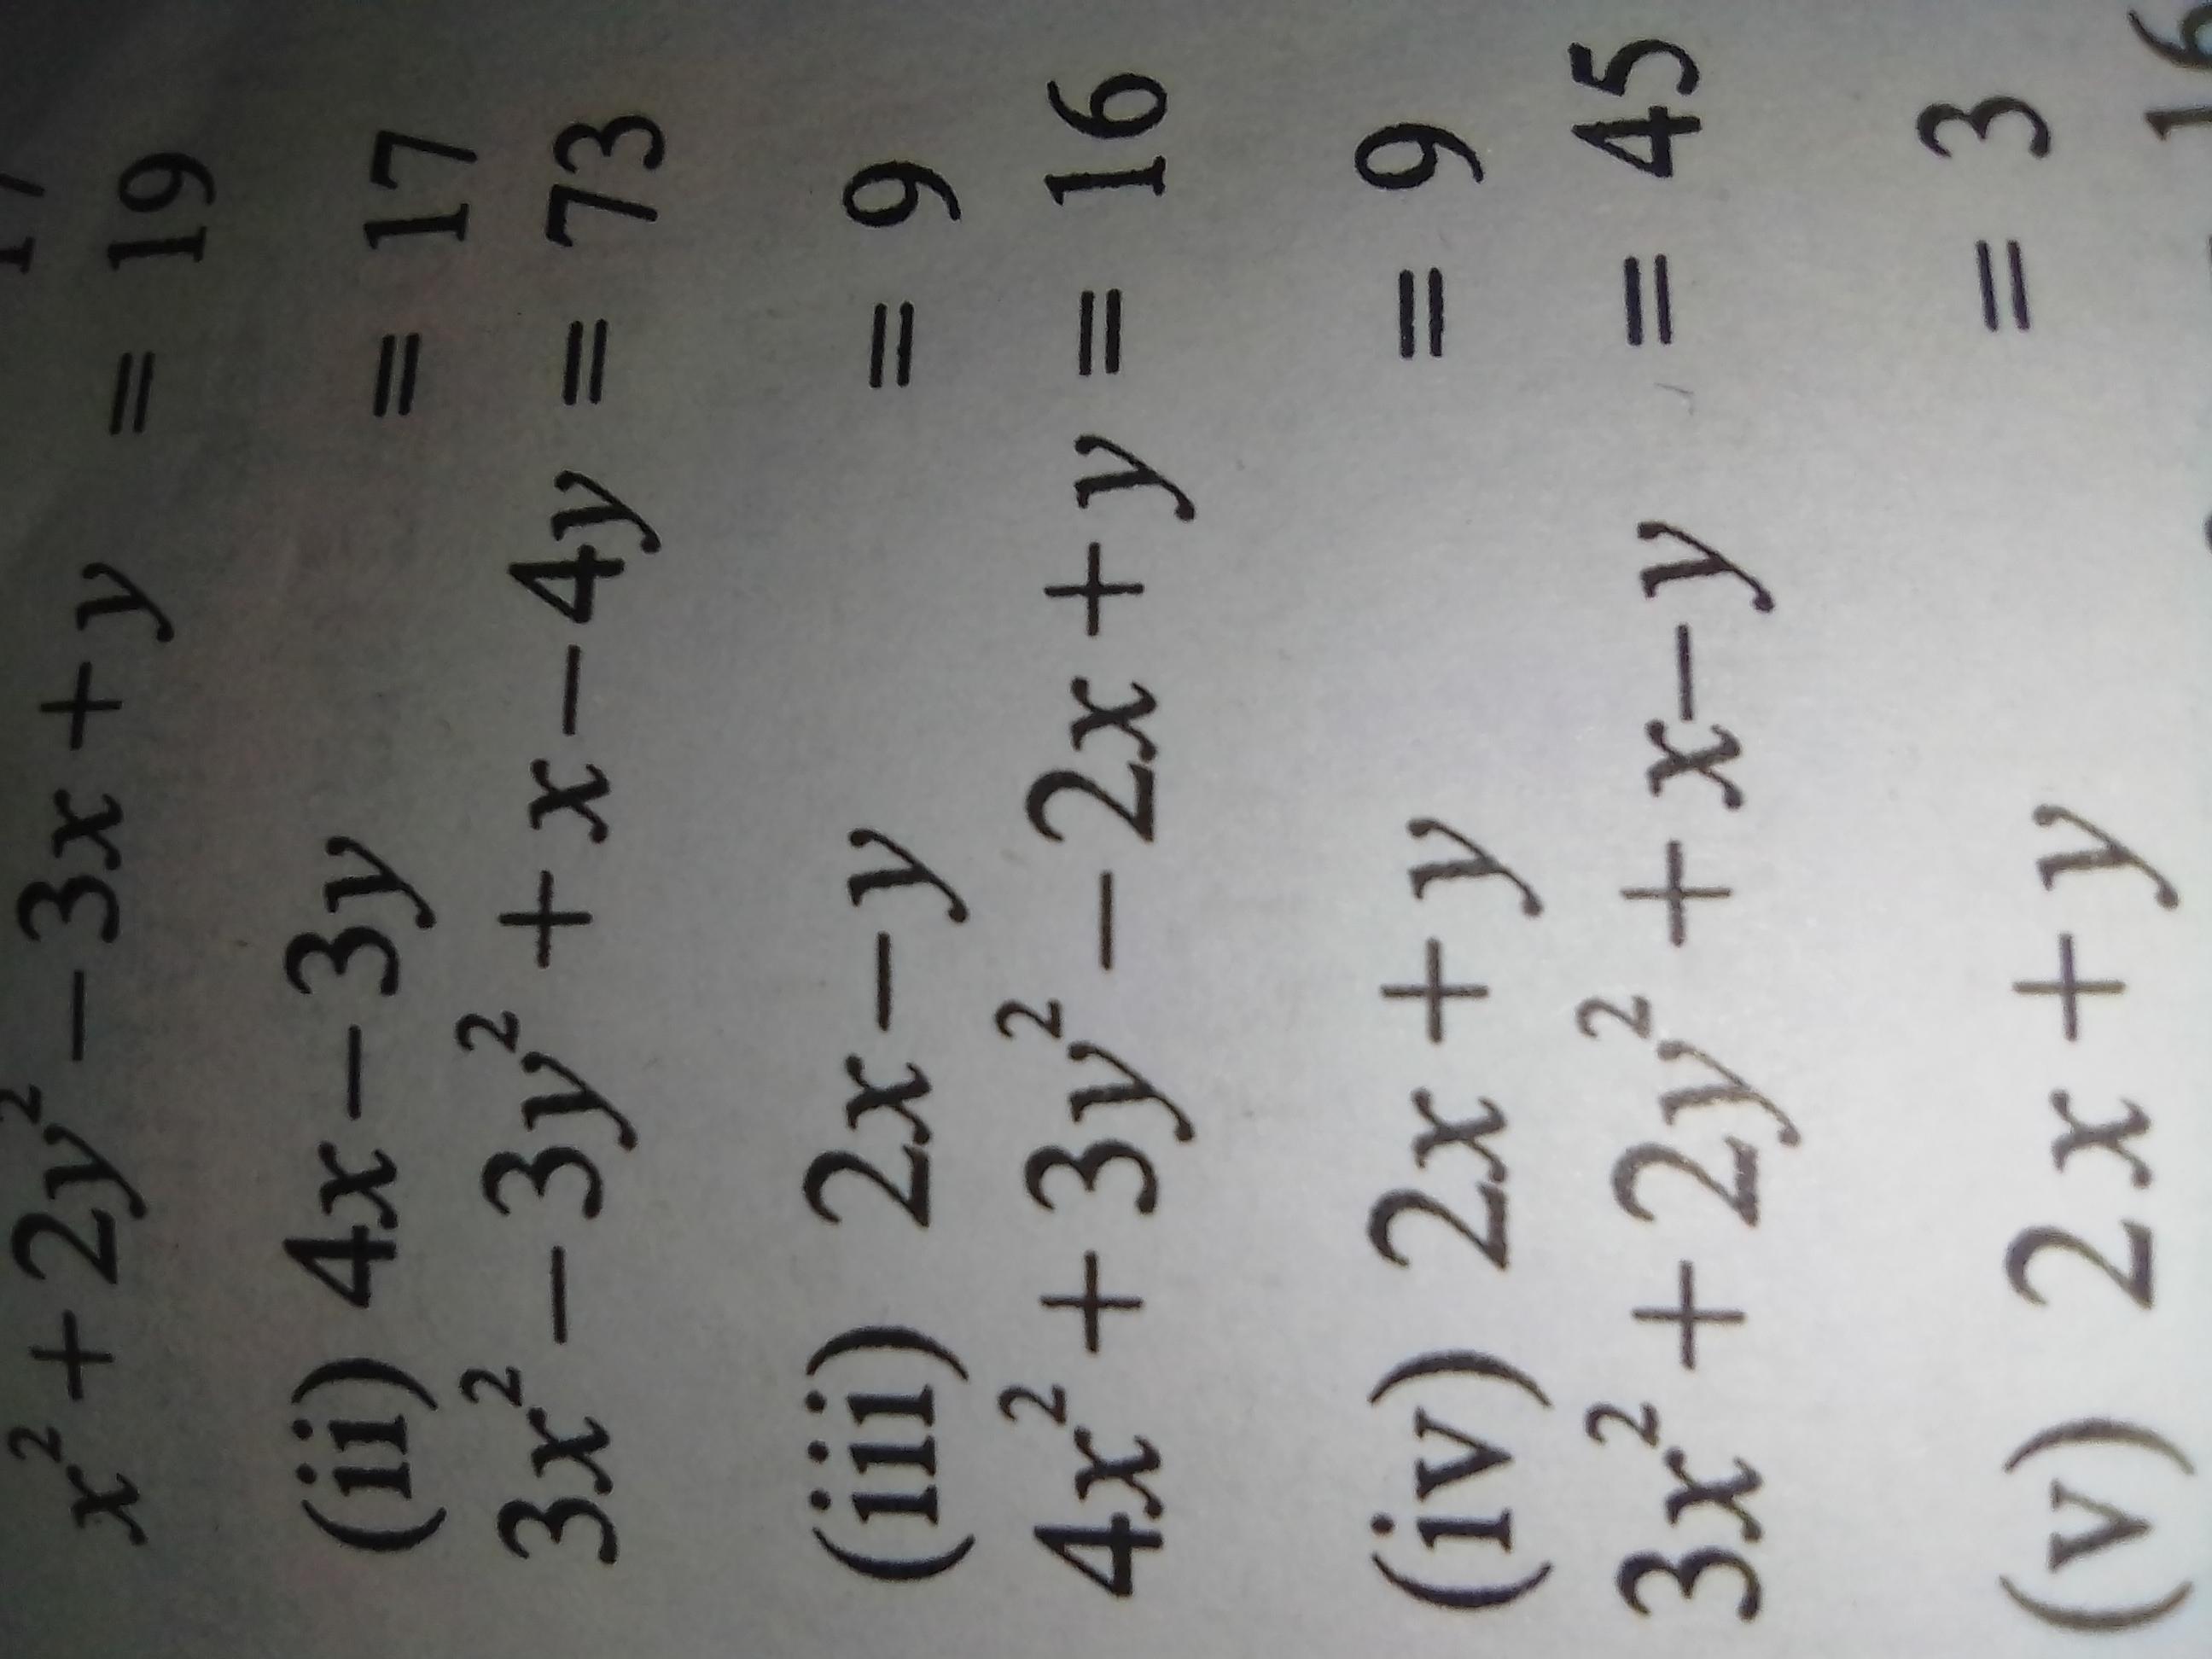 x² + 2y² − 3x + y = 19
(ii) 4x − 3y = 17
3x² − 3y² + x − 4y = 73
(iii) 2x − y = 9
4x² + 3y² − 2x + y = 16
(iv) 2x + y = 9
3x² + 2y² + x − y = 45
(v) 2x + y = 3